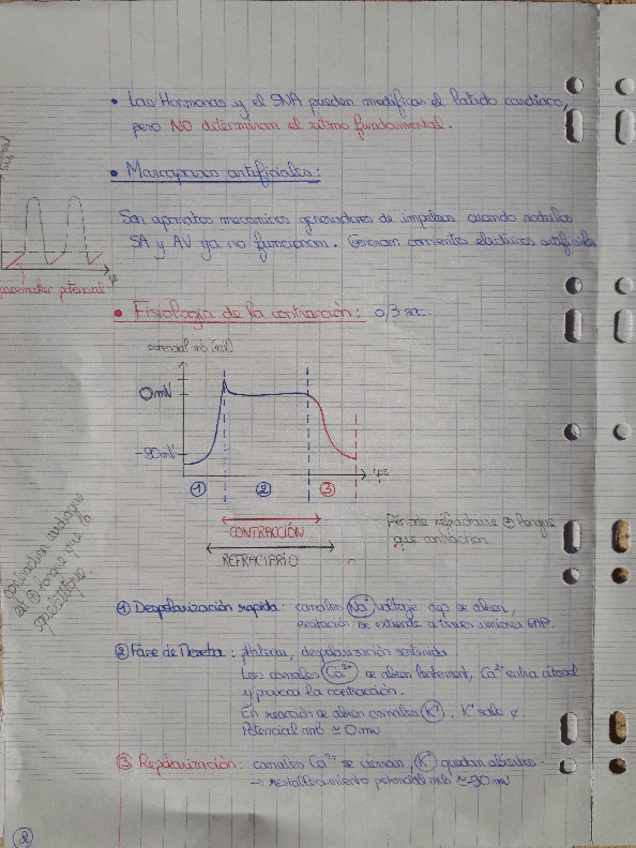 • Las Hormonas y el SNA pueden modificar el latido cardíaco,
pero NO determinan el ritmo fundamental.
• Marcapasos artificiales:
Son aparatos mecánicos generadores de impulsos cuando nodulos
SA y AV ya no funcionan. Generan corrientes eléctricas artificiales
pacemaker potencial
• Fisiología de la contracción: 0,3 sec.
potencial mb (mV)
0 mV
-90 mV
tps
① ② ③
CONTRACCIÓN
REFRACTARIO
Période réfractaire ⊕ longue
que contraction
contraction cardiaque
est ⊕ longue que la
squelettique.
① Despolarización rapida: canales Na⁺ voltaje dep se abren,
excitación se extiende a traves uniones GAP.
② Fase de Meseta: plateau, despolarización sostenida.
Los canales Ca²⁺ se abren lentement, Ca²⁺ entra citosol
y provoca la contracción.
En reacción se abren canales K⁺, K⁺ sale
Potencial mb ≃ 0 mV
③ Repolarización: canales Ca²⁺ se cierran, K⁺ quedan abiertos.
→ restablecimiento potencial mb ≃ -90 mV
2